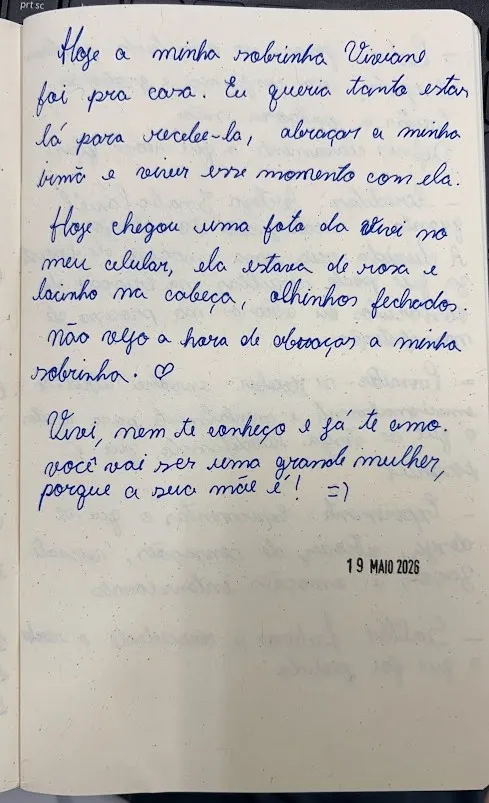 prt sc
Hoje a minha sobrinha Viviane
foi pra casa. Eu queria tanto estar
lá para recebe-la, abraçar a minha
irmã e viver esse momento com ela.
Hoje chegou uma foto da Vivi no
meu celular, ela estava de rosa e
lacinho na cabeça, olhinhos fechados.
não vejo a hora de abraçar a minha
sobrinha. ♡
Vivi, nem te conheço e já te amo.
você vai ser uma grande mulher,
porque a sua mãe é! =)
19 MAIO 2026